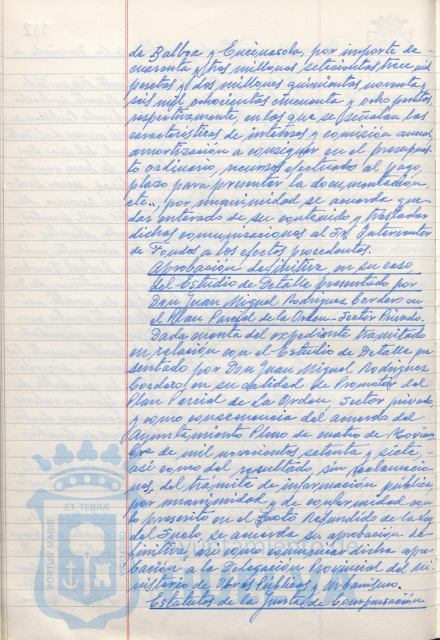 de Balboa y Encinasola, por importe de
cuarenta y tres millones setecientas trece mil
pesetas y dos millones quinientas noventa y
seis mil ochocientas cincuenta y ocho pesetas
respectivamente, en las que se señalan las
características de intereses y comisión anual
amortización a consignar en el presupues-
to ordinario, recursos afectados al pago,
plazo para presentar la documentación,
etc., por unanimidad se acuerda que-
dar enterado de su contenido y trasladar
dichas comunicaciones al Sr. Interventor
de Fondos a los efectos procedentes.
Aprobación definitiva en su caso
del Estudio de Detalle presentado por
Don Juan Miguel Rodríguez Cordero en
el Plan Parcial de la Orden - Sector Privado.
Dada cuenta del expediente tramitado
en relación con el Estudio de Detalle pre
sentado por Don Juan Miguel Rodríguez
Cordero, en su calidad de Promotor del
Plan Parcial de La Orden, Sector privado,
y como consecuencia del acuerdo del
Ayuntamiento Pleno de cuatro de Noviem
bre de mil novecientos setenta y siete,-
así como del resultado, sin reclamacio-
nes, del trámite de información pública
por unanimidad y de conformidad con
lo prescrito en el Texto Refundido de la Ley
del Suelo, se acuerda su aprobación de-
finitiva, así como comunicar dicha apro-
bación a la Delegación Provincial del Mi-
nisterio de Obras Públicas y Urbanismo.
Estatutos de la Junta de Compensación
PORTUS MARIS
ET TERRÆ
CUSTODIA